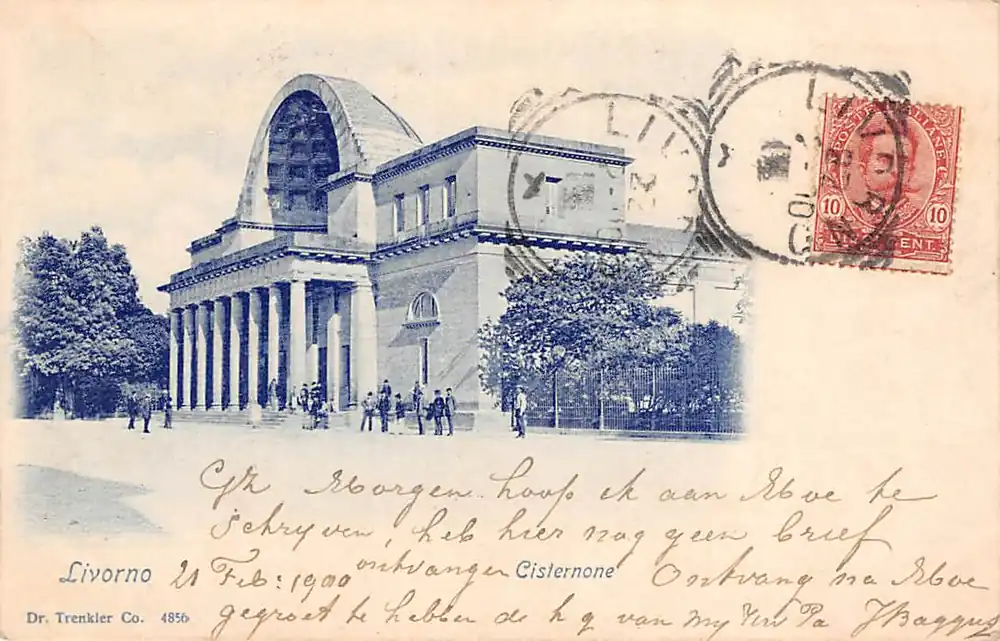 LIVORNO
LIVORNO
POSTE ITALIANE
10 10
CENT.
Morgen hoop ik aan Moe te
schryven, heb hier nog geen brief
ontvangen
Livorno 21 Feb: 1900 Cisternone Ontvang na Moe
gegroet te hebben de h g van my Uw Pa JBaggus
Dr. Trenkler Co. 4856